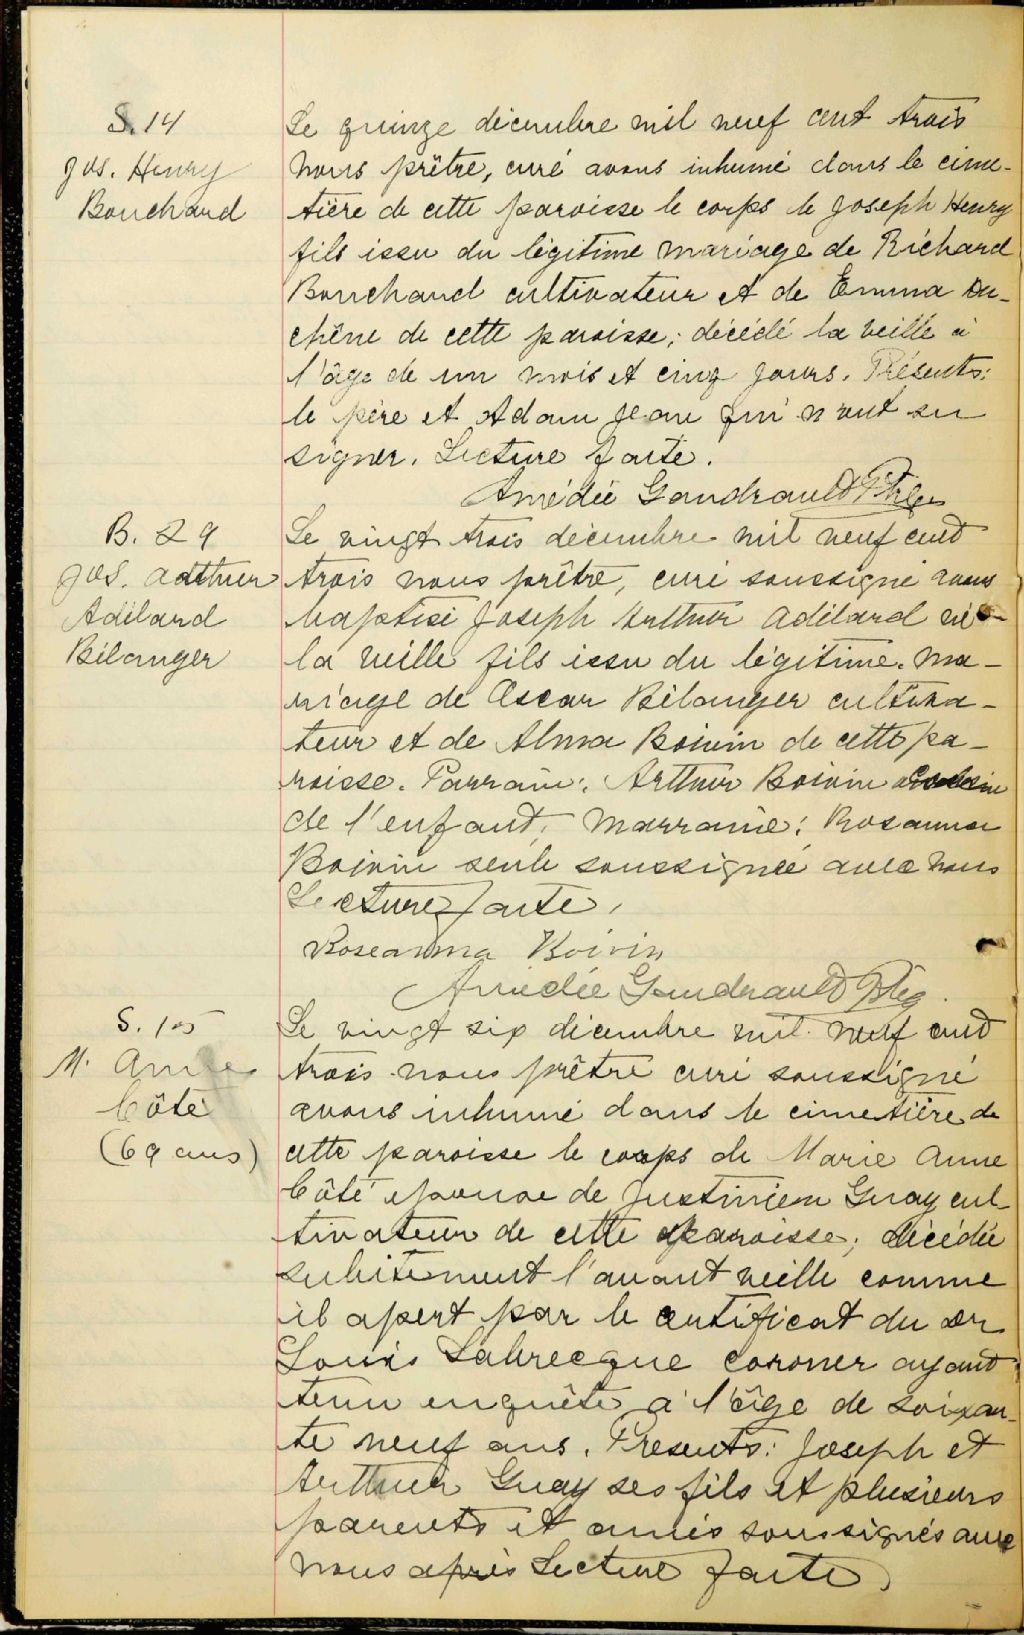 S. 14
Jos. Henry
Bouchard
Le quinze décembre mil neuf cent trois
nous prêtre, curé avons inhumé dans le cime-
tière de cette paroisse le corps de Joseph Henry
fils issu du légitime mariage de Richard
Bouchard cultivateur et de Emma Du-
chêne de cette paroisse; décédé la veille à
l'âge de un mois et cinq jours. Présents:
le père et Adam Jean qui n'ont su
signer. Lecture faite.
Amédée Gaudreault Ptre
B. 29
Jos. Arthur
Adélard
Bélanger
Le vingt trois décembre mil neuf cent
trois nous prêtre, curé soussigné avons
baptisé Joseph Arthur Adélard né
la veille fils issu du légitime ma-
riage de Oscar Bélanger cultiva-
teur et de Alma Boivin de cette pa-
roisse. Parrain: Arthur Boivin
de l'enfant, Marraine: Rosanna
Boivin seule soussignée avec nous
Lecture faite,
Roseanna Boivin
Amédée Gaudreault
S. 15
M. Anne
Côté
(69 ans)
Le vingt six décembre mil neuf cent
trois nous prêtre curé soussigné
avons inhumé dans le cimetière de
cette paroisse le corps de Marie Anne
Côté épouse de Justinien Guay cul-
tivateur de cette paroisse; décédée
subitement l'avant veille comme
il apert par le certificat du Dr
Louis Labrecque coroner ayant
tenu enquête à l'âge de soixan-
te neuf ans. Présents: Joseph et
Arthur Guay ses fils et plusieurs
parents et amis soussignés avec
nous après Lecture faite,